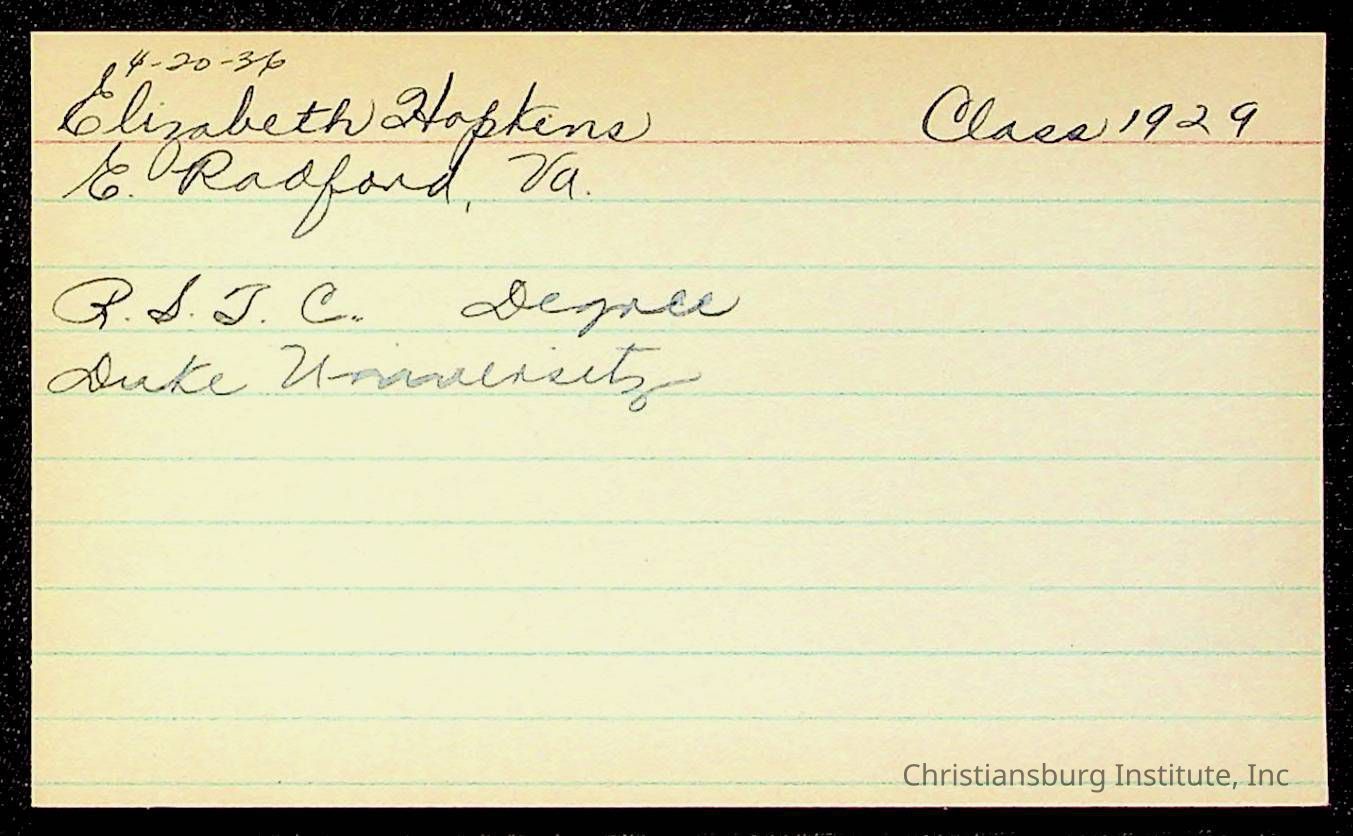 4-20-36
Elizabeth Hopkins Class 1929
E. Radford, Va.
R. S. T. C. Degree
Duke University
Christiansburg Institute, Inc